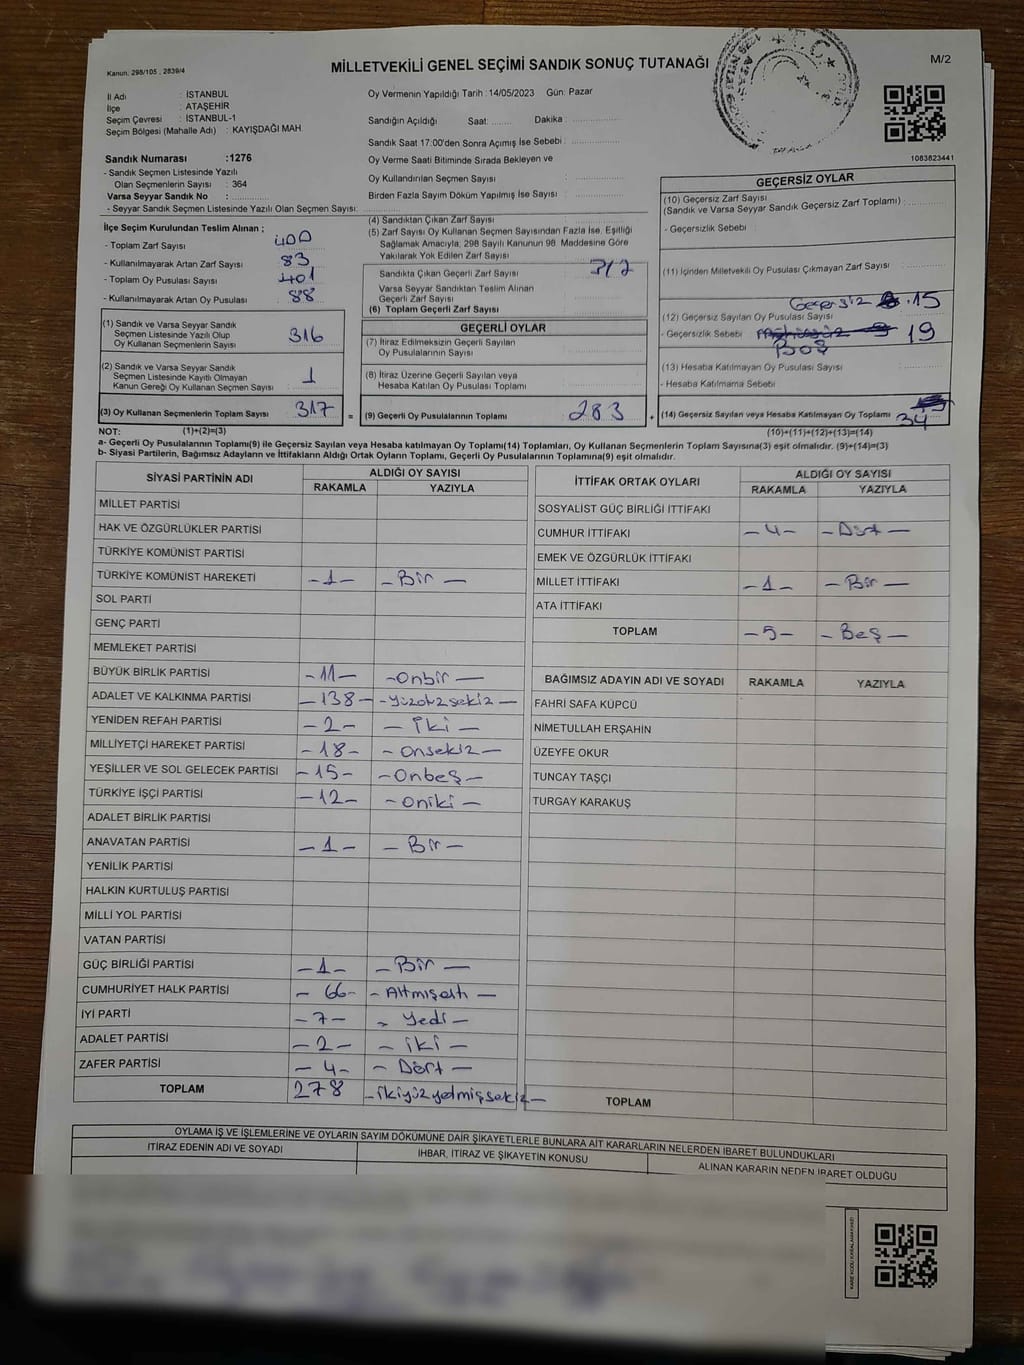 Kanun: 298/105 , 2839/4
MİLLETVEKİLİ GENEL SEÇİMİ SANDIK SONUÇ TUTANAĞI
M/2
İl Adı : İSTANBUL
İlçe : ATAŞEHİR
Seçim Çevresi : İSTANBUL-1
Seçim Bölgesi (Mahalle Adı) : KAYIŞDAĞI MAH.
Sandık Numarası :1276
- Sandık Seçmen Listesinde Yazılı
Olan Seçmenlerin Sayısı : 364
Varsa Seyyar Sandık No :
- Seyyar Sandık Seçmen Listesinde Yazılı Olan Seçmen Sayısı:
Oy Vermenin Yapıldığı Tarih :14/05/2023 Gün: Pazar
Sandığın Açıldığı Saat: Dakika :
Sandık Saat 17:00'den Sonra Açılmış İse Sebebi :
Oy Verme Saati Bitiminde Sırada Bekleyen ve
Oy Kullandırılan Seçmen Sayısı :
Birden Fazla Sayım Döküm Yapılmış İse Sayısı :
1083823441
İlçe Seçim Kurulundan Teslim Alınan ;
- Toplam Zarf Sayısı : 400
- Kullanılmayarak Artan Zarf Sayısı : 83
- Toplam Oy Pusulası Sayısı : 401
- Kullanılmayarak Artan Oy Pusulası : 88
(1) Sandık ve Varsa Seyyar Sandık
Seçmen Listesinde Yazılı Olup
Oy Kullanan Seçmenlerin Sayısı 316
(2) Sandık ve Varsa Seyyar Sandık
Seçmen Listesinde Kayıtlı Olmayan
Kanun Gereği Oy Kullanan Seçmen Sayısı : 1
(3) Oy Kullanan Seçmenlerin Toplam Sayısı 317 =
(4) Sandıktan Çıkan Zarf Sayısı :
(5) Zarf Sayısı Oy Kullanan Seçmen Sayısından Fazla İse, Eşitliği
Sağlamak Amacıyla, 298 Sayılı Kanunun 98. Maddesine Göre
Yakılarak Yok Edilen Zarf Sayısı :
Sandıkta Çıkan Geçerli Zarf Sayısı : 317
Varsa Seyyar Sandıktan Teslim Alınan
Geçerli Zarf Sayısı :
(6) Toplam Geçerli Zarf Sayısı :
GEÇERLİ OYLAR
(7) İtiraz Edilmeksizin Geçerli Sayılan
Oy Pusulalarının Sayısı :
(8) İtiraz Üzerine Geçerli Sayılan veya
Hesaba Katılan Oy Pusulası Toplamı :
(9) Geçerli Oy Pusulalarının Toplamı : 283 +
GEÇERSİZ OYLAR
(10) Geçersiz Zarf Sayısı
(Sandık ve Varsa Seyyar Sandık Geçersiz Zarf Toplamı) :
- Geçersizlik Sebebi :
(11) İçinden Milletvekili Oy Pusulası Çıkmayan Zarf Sayısı :
Geçersiz 15
(12) Geçersiz Sayılan Oy Pusulası Sayısı :
- Geçersizlik Sebebi : 19
Boş
(13) Hesaba Katılmayan Oy Pusulası Sayısı :
- Hesaba Katılmama Sebebi :
(14) Geçersiz Sayılan veya Hesaba Katılmayan Oy Toplamı : 34
NOT: (1)+(2)=(3)
(10)+(11)+(12)+(13)=(14)
a- Geçerli Oy Pusulalarının Toplamı(9) ile Geçersiz Sayılan veya Hesaba katılmayan Oy Toplamı(14) Toplamları, Oy Kullanan Seçmenlerin Toplam Sayısına(3) eşit olmalıdır. (9)+(14)=(3)
b- Siyasi Partilerin, Bağımsız Adayların ve İttifakların Aldığı Ortak Oyların Toplamı, Geçerli Oy Pusulalarının Toplamına(9) eşit olmalıdır.
SİYASİ PARTİNİN ADI ALDIĞI OY SAYISI
RAKAMLA YAZIYLA
MİLLET PARTİSİ
HAK VE ÖZGÜRLÜKLER PARTİSİ
TÜRKİYE KOMÜNİST PARTİSİ
TÜRKİYE KOMÜNİST HAREKETİ -1- -Bir-
SOL PARTİ
GENÇ PARTİ
MEMLEKET PARTİSİ
BÜYÜK BİRLİK PARTİSİ -11- -Onbir-
ADALET VE KALKINMA PARTİSİ -138- -Yüzotuzsekiz-
YENİDEN REFAH PARTİSİ -2- -İki-
MİLLİYETÇİ HAREKET PARTİSİ -18- -Onsekiz-
YEŞİLLER VE SOL GELECEK PARTİSİ -15- -Onbeş-
TÜRKİYE İŞÇİ PARTİSİ -12- -Oniki-
ADALET BİRLİK PARTİSİ
ANAVATAN PARTİSİ -1- -Bir-
YENİLİK PARTİSİ
HALKIN KURTULUŞ PARTİSİ
MİLLİ YOL PARTİSİ
VATAN PARTİSİ
GÜÇ BİRLİĞİ PARTİSİ -1- -Bir-
CUMHURİYET HALK PARTİSİ -66- -Altmışaltı-
İYİ PARTİ -7- -Yedi-
ADALET PARTİSİ -2- -İki-
ZAFER PARTİSİ -4- -Dört-
TOPLAM 278 -ikiyüzyetmişsekiz-
İTTİFAK ORTAK OYLARI ALDIĞI OY SAYISI
RAKAMLA YAZIYLA
SOSYALİST GÜÇ BİRLİĞİ İTTİFAKI
CUMHUR İTTİFAKI -4- -Dört-
EMEK VE ÖZGÜRLÜK İTTİFAKI
MİLLET İTTİFAKI -1- -Bir-
ATA İTTİFAKI
TOPLAM -5- -Beş-
BAĞIMSIZ ADAYIN ADI VE SOYADI RAKAMLA YAZIYLA
FAHRİ SAFA KÜPCÜ
NİMETULLAH ERŞAHİN
ÜZEYFE OKUR
TUNCAY TAŞÇI
TURGAY KARAKUŞ
TOPLAM
OYLAMA İŞ VE İŞLEMLERİNE VE OYLARIN SAYIM DÖKÜMÜNE DAİR ŞİKAYETLERLE BUNLARA AİT KARARLARIN NELERDEN İBARET BULUNDUKLARI
İTİRAZ EDENİN ADI VE SOYADI İHBAR, İTİRAZ VE ŞİKAYETİN KONUSU ALINAN KARARIN NEDEN İBARET OLDUĞU